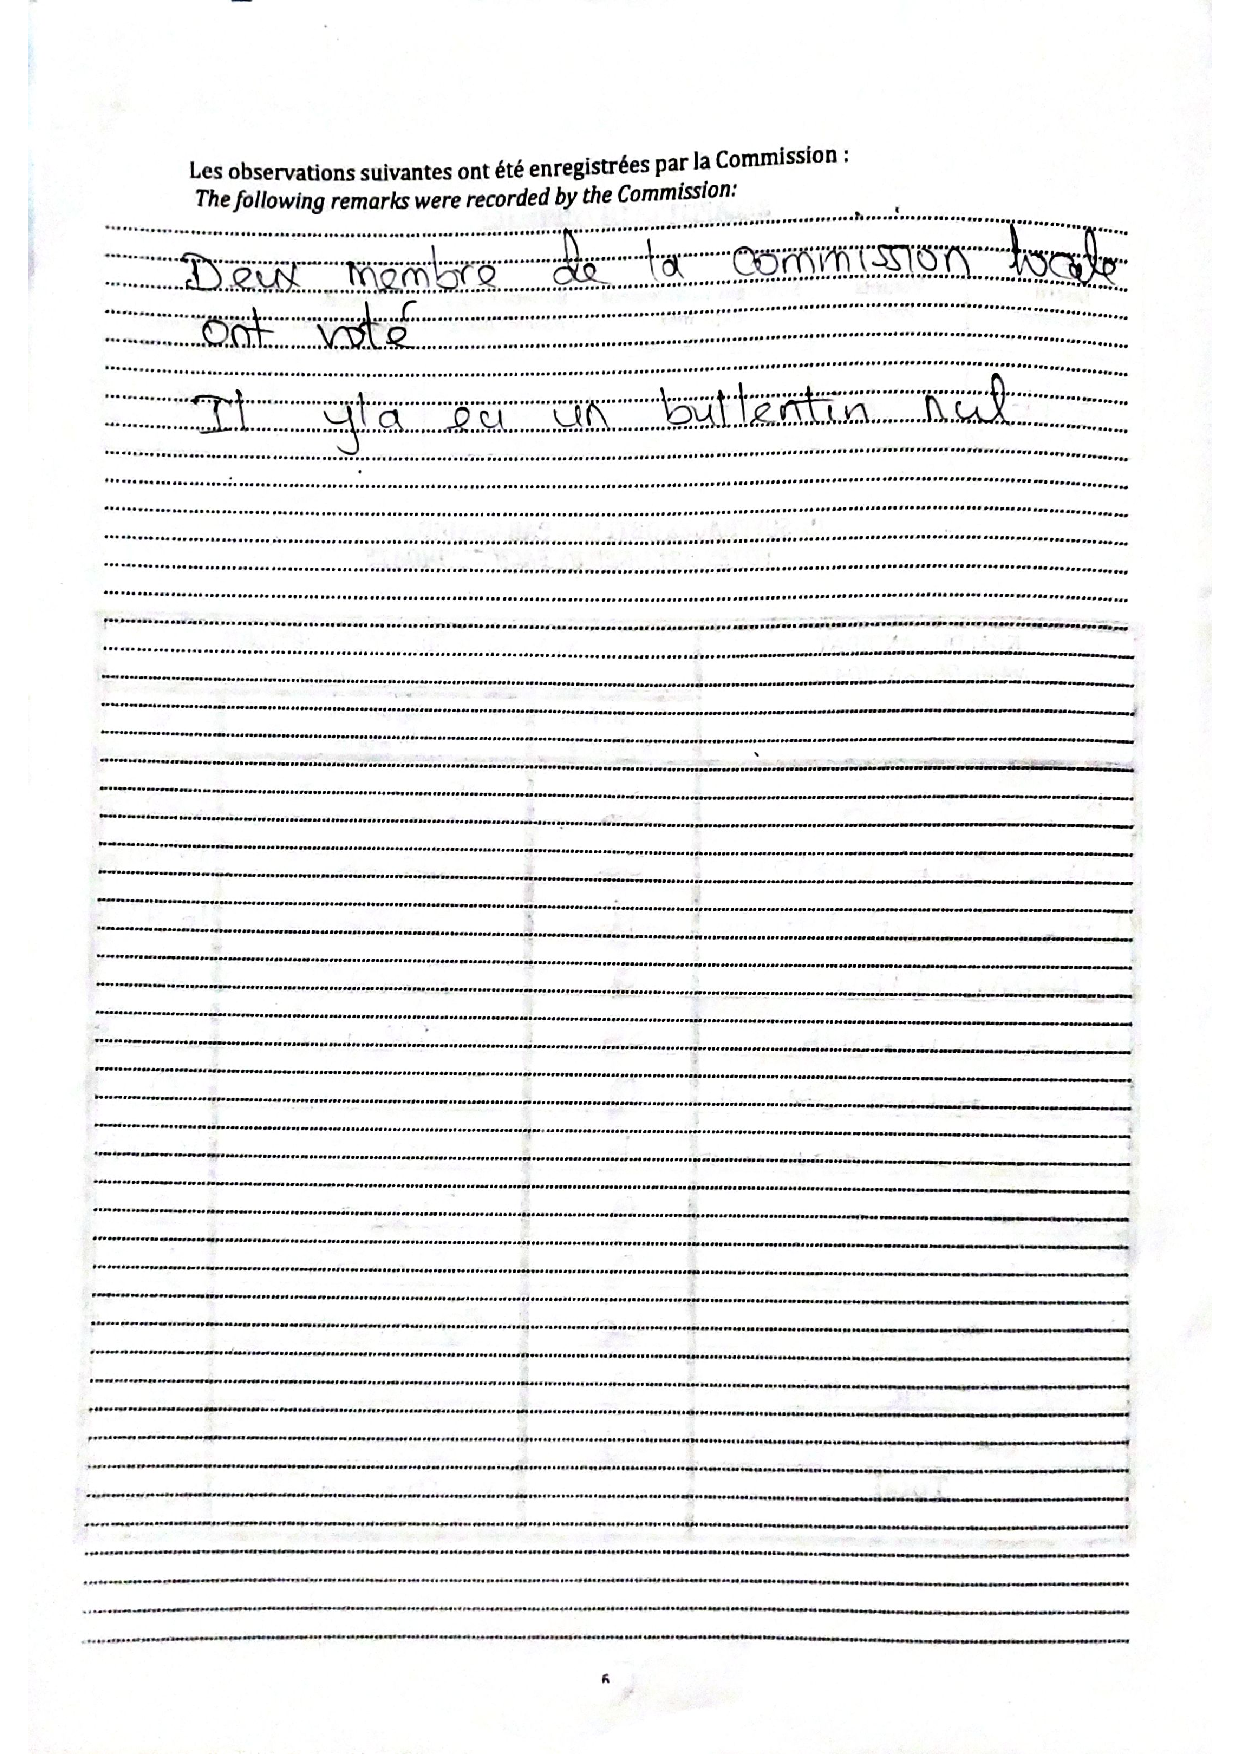 Les observations suivantes ont été enregistrées par la Commission :
The following remarks were recorded by the Commission:
Deux membre de la commission locale
ont voté
Il y'a eu un bullentin nul
6